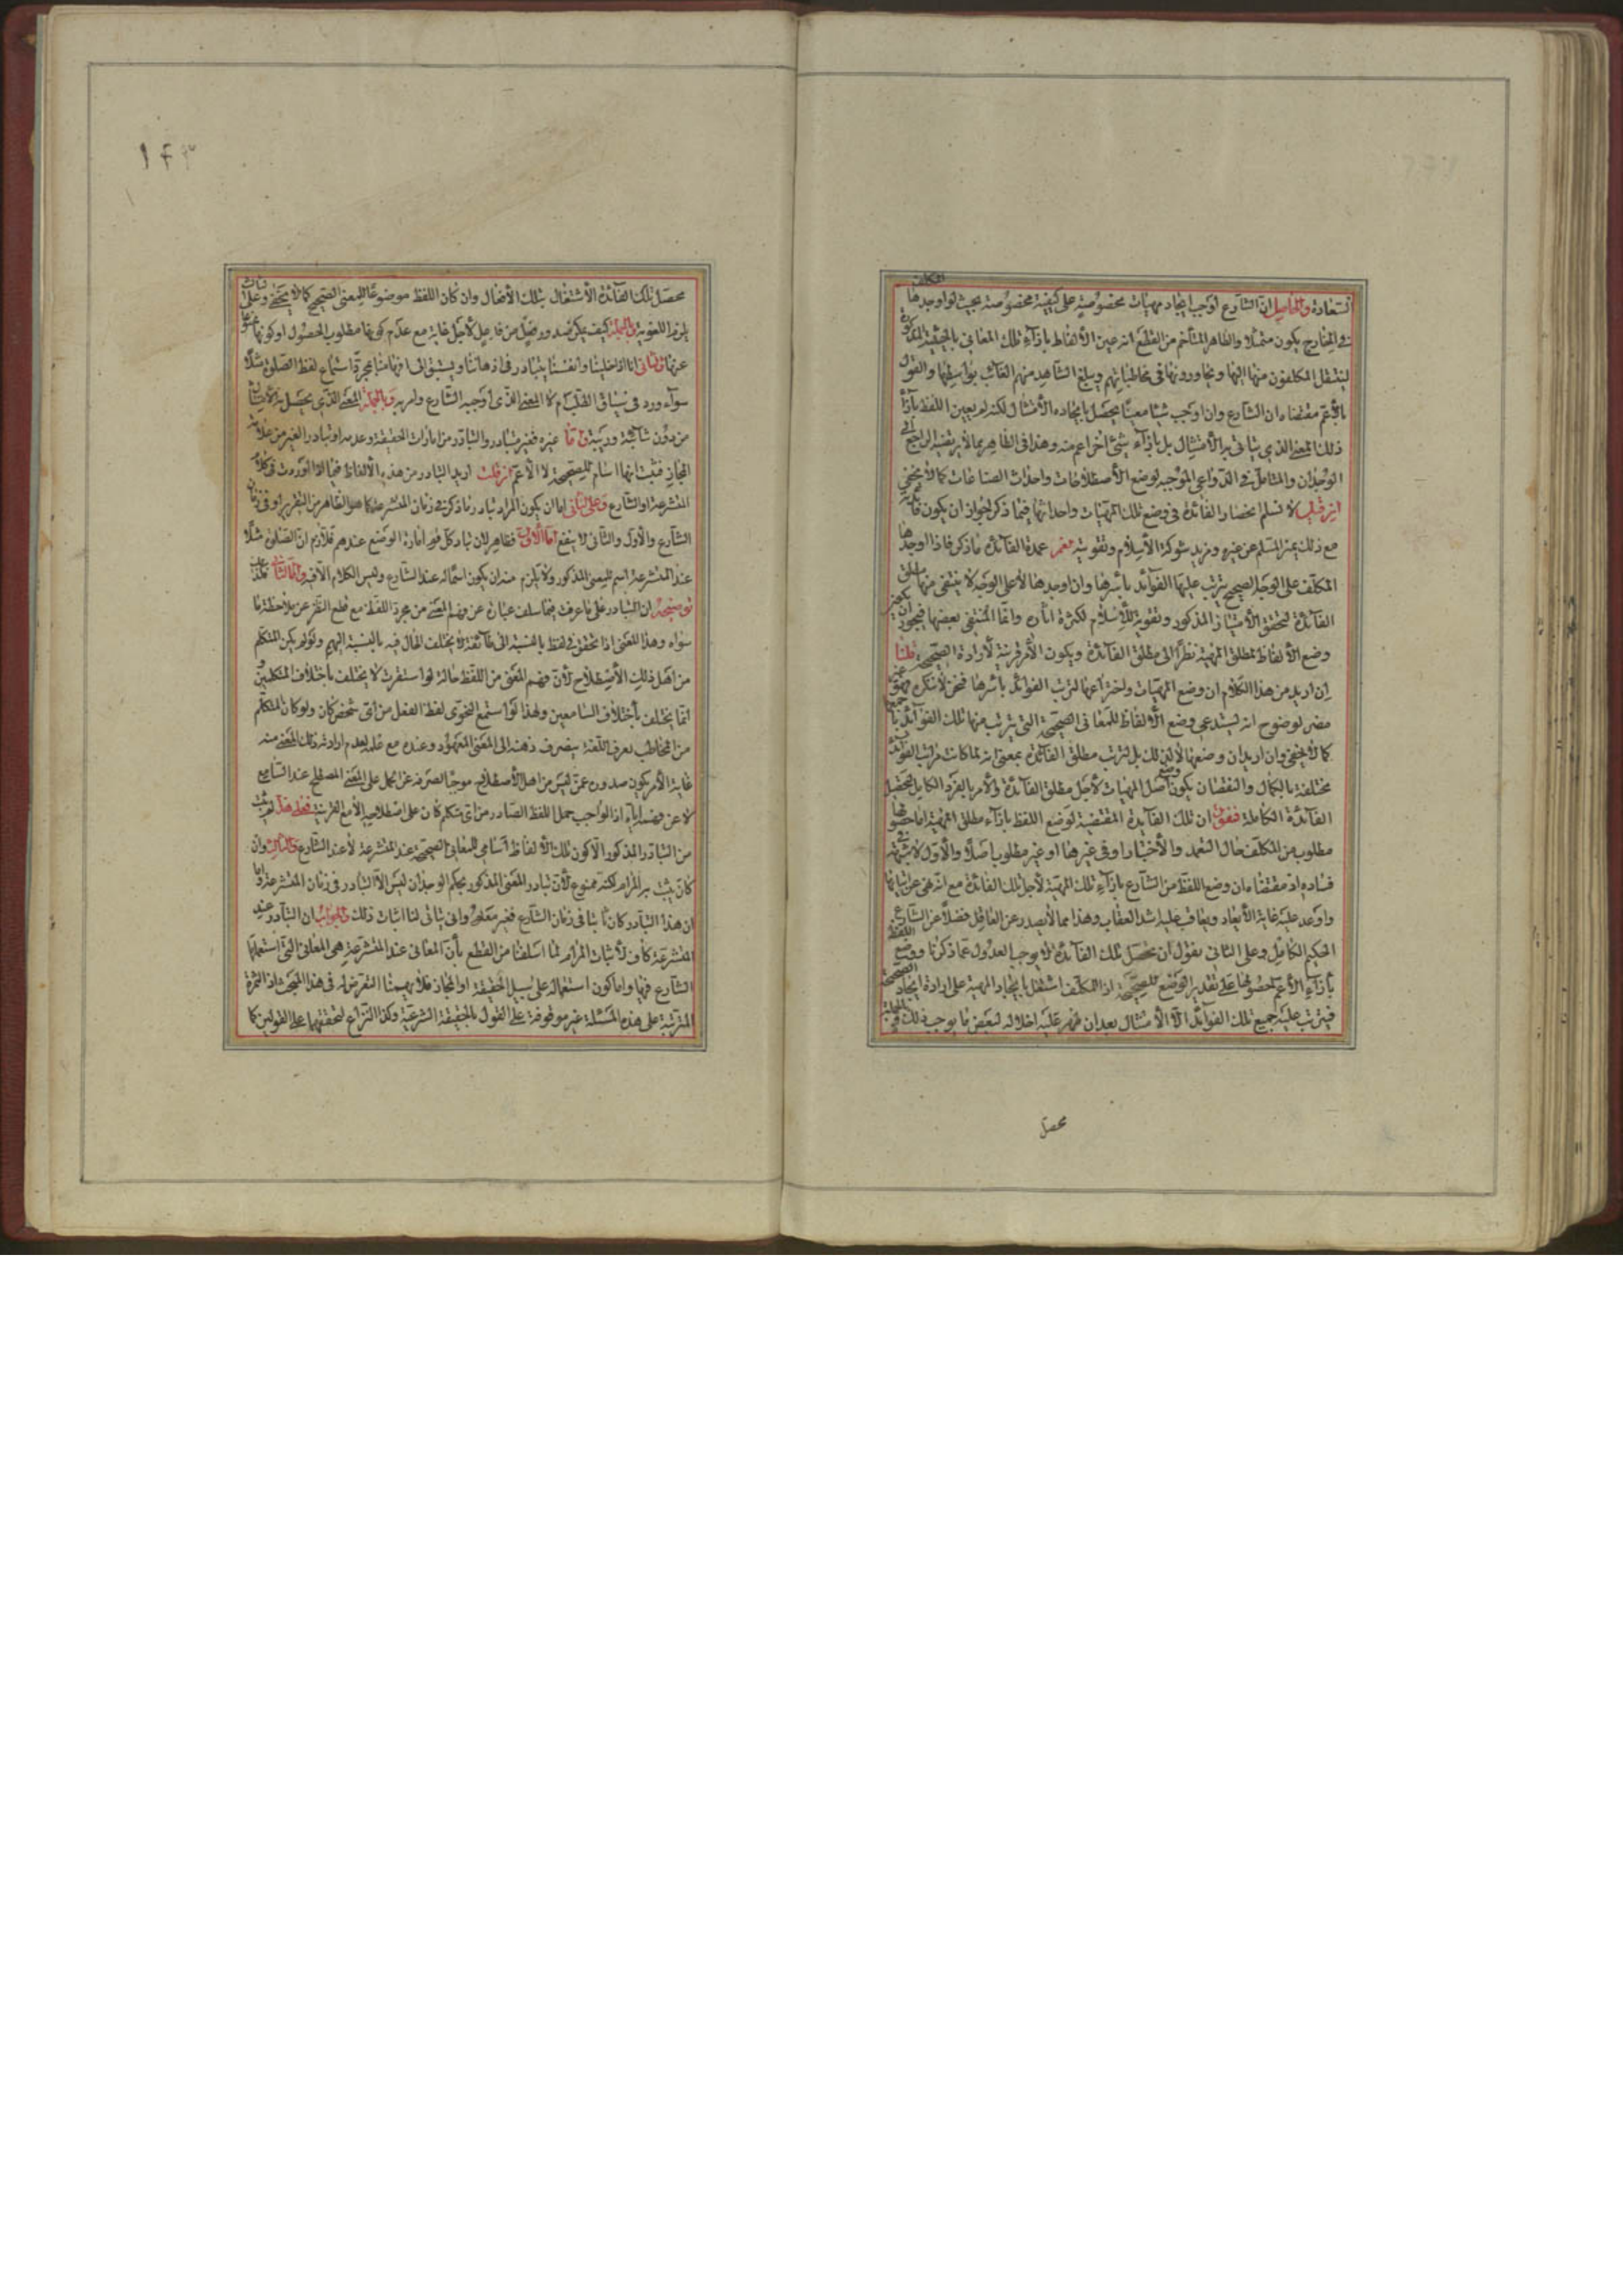 السعادة والحاصل ان الشارع اوجب ايجاد مهيات مخصوصة على كيفية مخصوصة بحيث لو اوجدها المكلف
في الخارج يكون ممتثلا والظاهر المتاخم من القطع انه عين الألفاظ بازآء تلك المعاني بالحيثية المذكورة
لينتقل المكلفون منها اليها ويحاورونها في مخاطباتهم ويبلغ الشاهد منهم الغائب بواسطتها والقول
بالأعم مقتضاه ان الشارع وان اوجب شيئا معينا يحصل بايجاده الأمتثال لكنه لم يعين اللفظ بازآء
ذلك المعنى الذي يتأتى به الأمتثال بل بازآء شيء اخر اعم منه وهذا في الظاهر مما لا يرتضيه الراجع الى
الوجدان والمتأمل في الدواعي الموجبة لوضع الأصطلاحات واحداث الصناعات كما لا يخفى
ان قلت لا نسلم انحصار الفائدة في وضع تلك المهيات واحداثها فيما ذكر لجواز ان يكون فائدته
مع ذلك تميز المسلم عن غيره ومزيد شوكة الأسلام وتقويته نعم عمدة الفآئدة ما ذكر فاذا اوجدها
المكلف على الوجه الصحيح يترتب عليها الفوآئد بأسرها وان اوجدها لا على الوجه لا ينتفى منها مطلق
الفآئدة لتحقق الأمتياز المذكور وتقوية للأسلام لكثرة اناره وانما المنتفى بعضها فيجوز ان يكون
وضع الألفاظ لمطلق المهية نظرا الى مطلق الفآئدة ويكون الأمر قرينة لأرادة الصحيحة قلنا
ان اريد من هذا الكلام ان وضع المهيات واختراعها لترتب الفوائد بأسرها فنحن لا ننكره فهو غير
مضر لوضوح انه يستدعي وضع الألفاظ للمعاني الصحيحة التي يترتب منها تلك الفوآئد
كما لا يخفى وان اريد ان وضعها لا لذلك بل لترتب مطلق الفآئدة بمعنى انه لما كانت مراتب الفوآئد
مختلفة بالكمال والنقصان يكون اصل وضع المهيات لأجل مطلق الفآئدة والأمر بالفرد الكامل لتحصيل
الفآئدة الكاملة فنقول ان تلك الفآيدة المقتضية لوضع اللفظ بازآء مطلق المهية اما حصولها
مطلوب من المكلف حال التعمد والأختيار او في غيرها او غير مطلوب اصلا والأول لا شبهة في
فساده اذ مقتضاه ان وضع اللفظ من الشارع بازآء تلك المهية لأجل تلك الفائدة مع انه نهى عن اتيانها
واوعد عليه غاية الأبعاد ويعاقب عليه اشد العقاب وهذا مما لا يصدر عن العاقل فضلا عن الشارع
الحكيم الكامل وعلى الثاني نقول ان تحصل تلك الفآئدة لا يوجب العدول عما ذكرنا ووضع اللفظ
بأزاء الأعم لحصولها على تقدير الوضع للصحيحة اذ المكلف اشتغل بايجاد المهية على ارادة ايجاد الصحيحة
فيترتب عليه جميع تلك الفوآئد الا الأمتثال بعد ان ظهر عليه اخلاله لبعض ما يوجب ذلك
محصل
١٤٣
محصل تلك الفآئدة الأشتغال بتلك الأفعال وان كان اللفظ موضوعا للمعنى الصحيح كما لا يخفى وعلى الثالث
يلزم اللغوية وبالجملة كيف يمكن صدور فعل من فاعل لأجل غاية مع عدم كونها مطلوب الحصول او كونها ممنوعا
عنها والثاني انا اذا خلينا وانفسنا يتبادر في اذهاننا ويستبق الى افهامنا بمجرد استماع لفظ الصلوة مثلا
سوآء ورد في سياق الطلب ام لا المعنى الذي اوجبه الشارع وامر به وبالجملة المعنى الذي يحصل به الأمتثال
من دون شائبة وريبة واما غيره فغير متبادر والتبادر من امارات الحقيقة وعدمه او تبادر الغير من علائم
المجاز فثبت انها اسام للصحيحة لا الأعم ان قلت اريد التبادر من هذه الألفاظ فيما اذا وردت في كلام
المتشرعة او الشارع وعلى الثاني اما ان يكون المراد تبادر ما ذكر في زمان المتشرعة كما هو الظاهر من التقرير او في زمان
الشارع والأول والثاني لا ينفع اما الأول فظاهر لأن تبادر كل قوم امارة الوضع عندهم فلازم ان الصلوة مثلا
عند المتشرعة اسم للمعنى المذكور ولا يلزم منه ان يكون اسما له عند الشارع وليس الكلام الا فيه واما الثاني
توضيحه ان التبادر على ما عرفت فيما سلف عبارة عن فهم المعنى من مجرد اللفظ مع قطع النظر عن ملاحظة ما
سواه وهذا المعنى اذا تحقق في لفظ بالنسبة الى طآئفة لا يختلف الحال فيه بالنسبة اليهم ولو لم يكن المتكلم
من اهل ذلك الأصطلاح لأن فهم المعنى من اللفظ حالة لو استقرت لا يختلف بأختلاف المتكلمين و
انما يختلف بأختلاف السامعين ولهذا لو استمع النحوي لفظ الفعل من اي شخص كان ولو كان المتكلم
من المخاطب لعرف اللغة ينصرف ذهنه الى المعنى المعهود عنده مع علمه بعدم ارادته ذلك المعنى منه
غاية الأمر يكون صدوره عمن ليس من اهل الأصطلاح موجبا لصرفه عن الحمل على المعنى المصطلح عند السامع
لا عن فهمه اياه اذ الواجب حمل اللفظ الصادر من اي متكلم كان على اصطلاحه الا مع القرينة فعلى هذا لم يثبت
من التبادر المذكور الا كون تلك الألفاظ اسامي للمعاني الصحيحة عند المتشرعة لا عند الشارع والثالث وان
كان يثبت به المرام لكنه ممنوع لأن تبادر المعنى المذكور بحكم الوجدان ليس الا التبادر في زمان المتشرعة واما
ان هذا التبادر كان ثابتا في زمان الشارع فغير معلوم وانى يتأتى لنا اثبات ذلك والجواب ان التبادر عند
المتشرعة كاف لأثبات المرام لما اسلفنا من القطع بأن المعاني عند المتشرعة هي المعاني التي استعملها
الشارع فيها واما كون استعماله على سبيل الحقيقة او المجاز فلا يهمنا التعرض له في هذا المبحث اذ الثمرة
المترتبة على هذه المسئلة غير موقوفة على القول بالحقيقة الشرعية وكذا النزاع لتحققهما على القولين كما